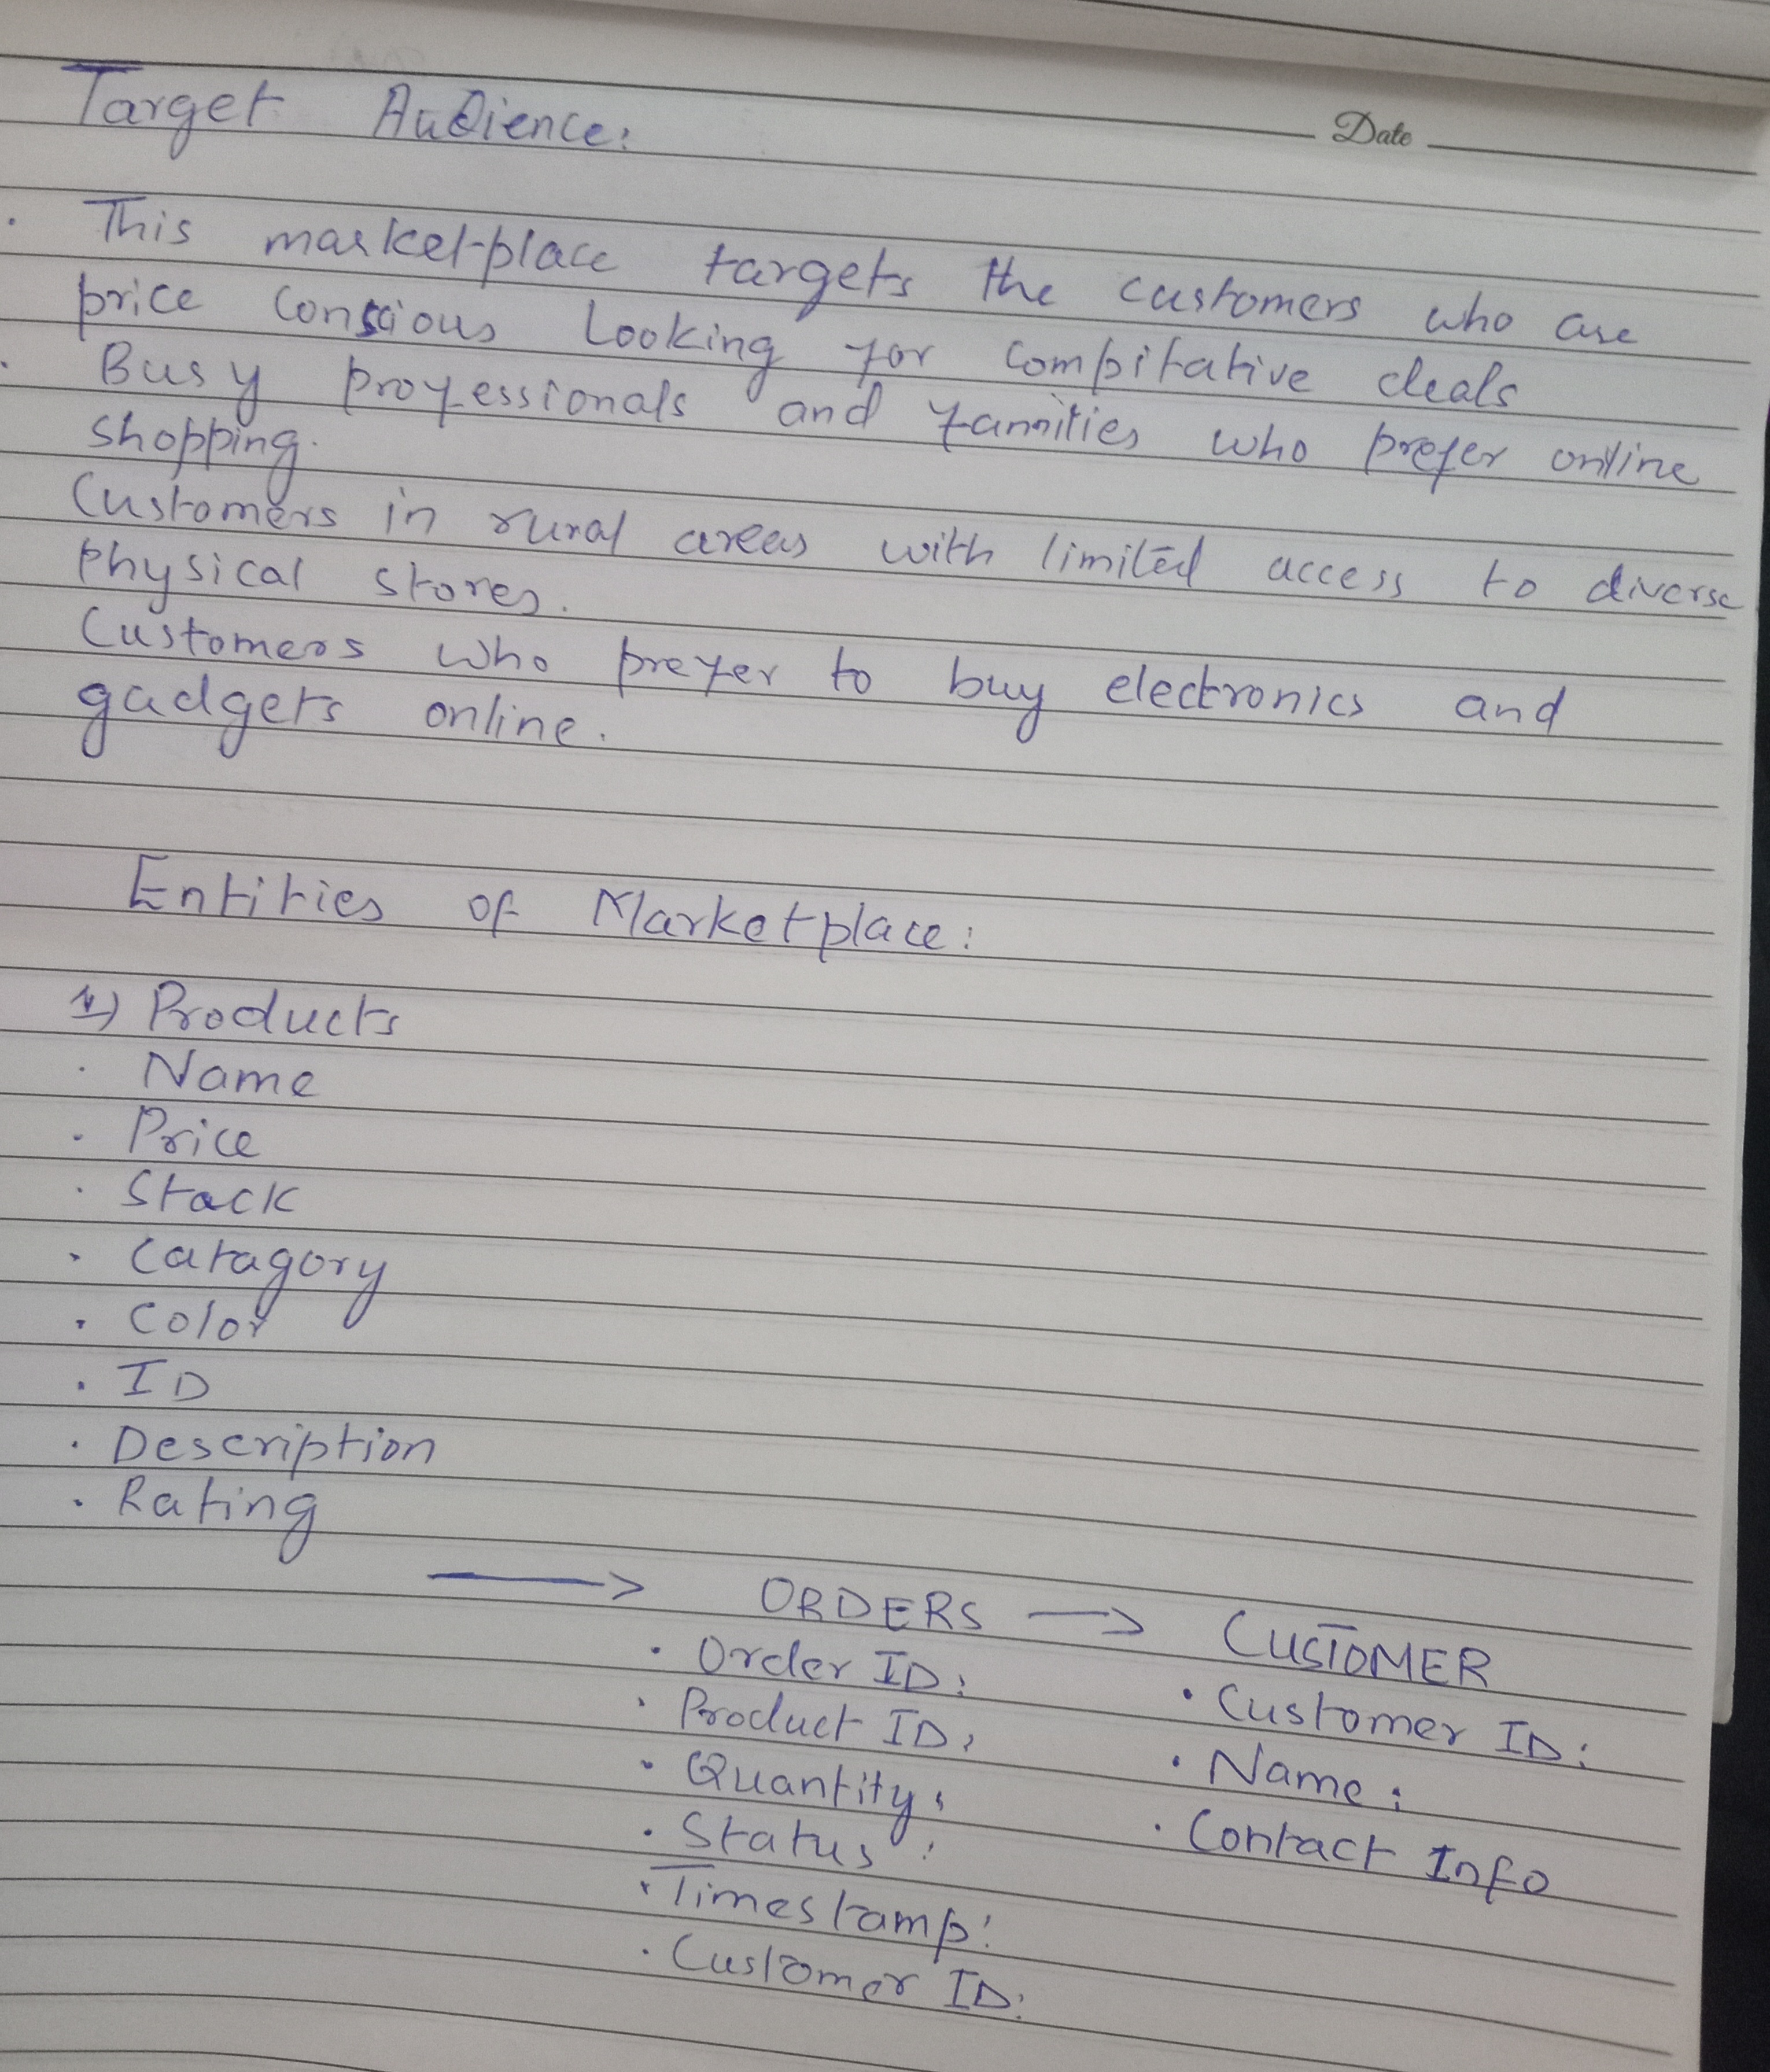 Date
Target Audience:
. This marketplace targets the customers who are
price Conscious Looking for Compitative deals
. Busy professionals and families who prefer online
shopping.
Customers in rural areas with limited access to diverse
physical stores.
Customers who prefer to buy electronics and
gadgets online.
Entities of Marketplace:
1) Products
. Name
. Price
. Stack
. Catagory
. Color
. ID
. Description
. Rating
→ ORDERS → CUSTOMER
. Order ID:
. Product ID:
. Quantity:
. Status:
. Timestamp:
. Customer ID:
. Customer ID:
. Name:
. Contact Info